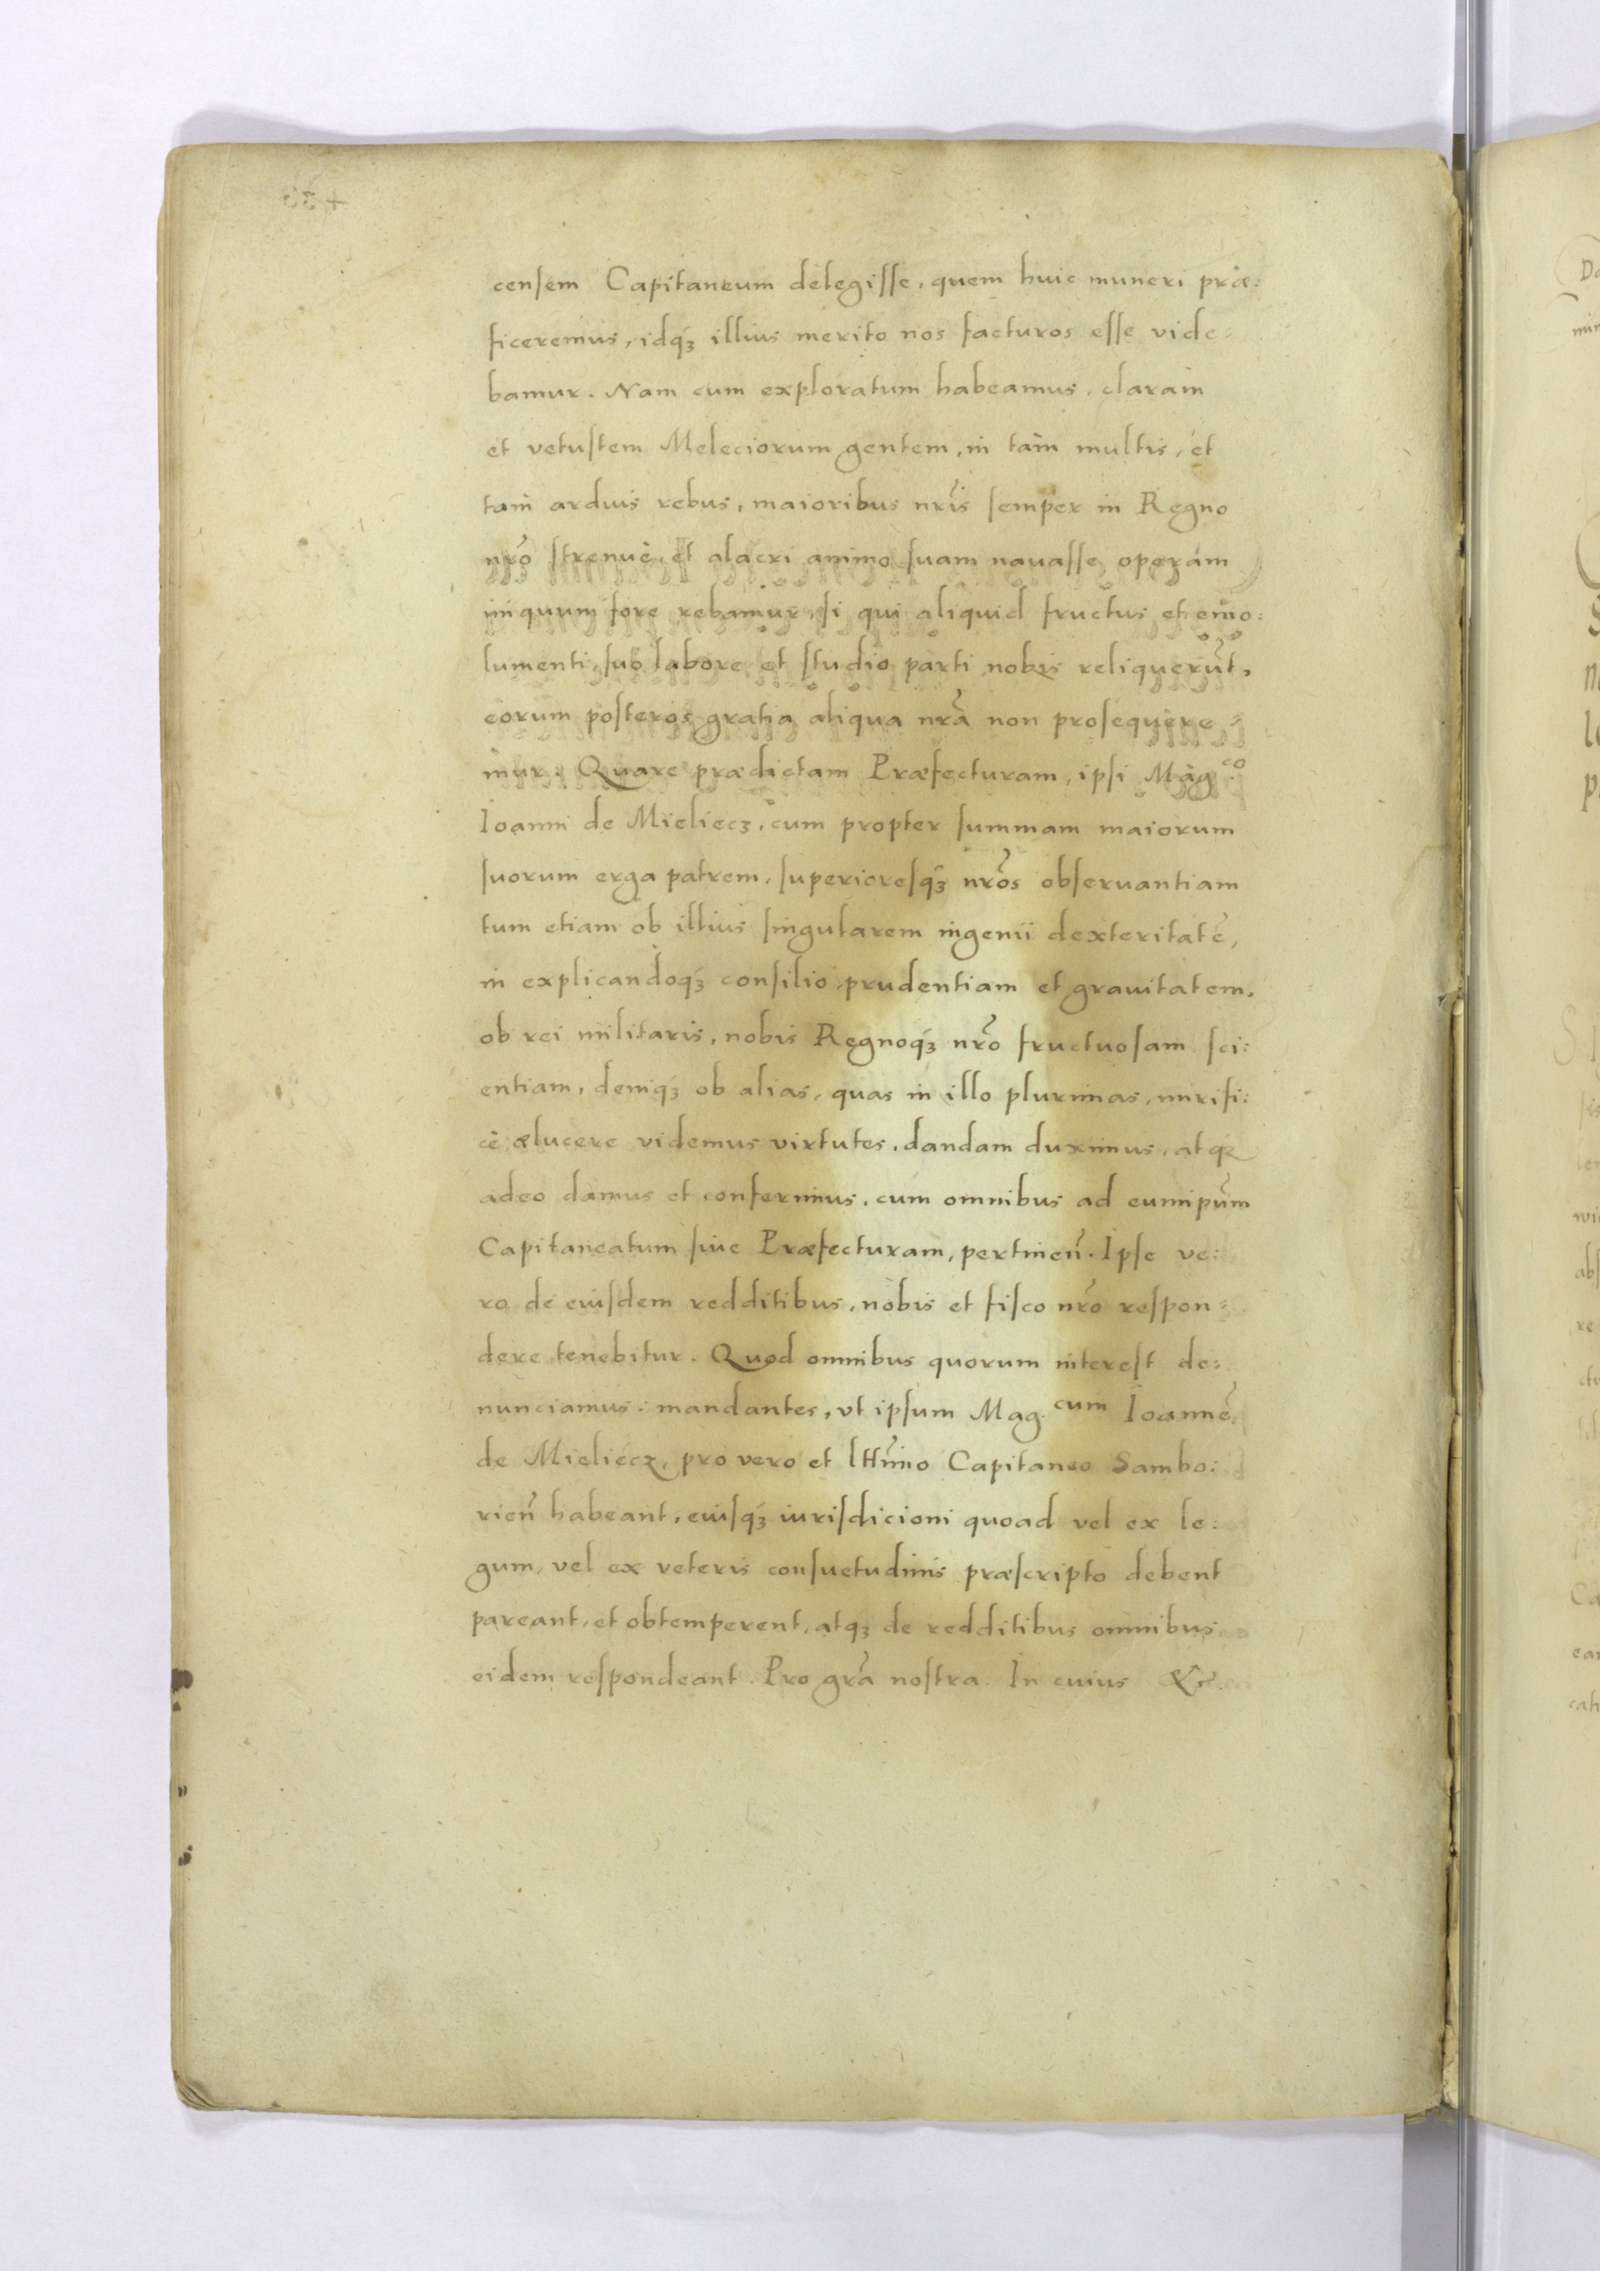 censem Capitaneum delegisse, quem huic muneri præ:
ficeremus, idq́ꝫ illius merito nos facturos esse vide-
bamur. Nam cum exploratum habeamus, claram
et vetustem Meleciorum gentem, in tam multis, et
tam arduis rebus, maioribus nr̃is semper in Regno
nr̃o strenuè, et alacri animo suam nauasse operam
iniquum fore rebamur, si qui aliquid fructus et emo:
lumenti, suo labore et studio parti nobis reliquerũt,
eorum posteros gratia aliqua nr̃a non prosequere-
mur. Quare prædictam Præfecturam, ipsi Mag.co
Ioanni de Mieliecz, cum propter summam maiorum
suorum erga patrem, superioresq́ꝫ nr̃os obseruantiam
tum etiam ob illius singularem ingenii dexteritatẽ,
in explicandoq́ꝫ consilio prudentiam et grauitatem,
ob rei militaris, nobis Regnoq́ꝫ nr̃o fructuosam sci:
entiam, deniq́ꝫ ob alias, quas in illo plurimas, mirifi:
cè ælucere videmus virtutes, dandam duximus, atqꝫ
adeo damus et conferimus, cum omnibus ad eumip̃um
Capitaneatum siue Præfecturam, pertineñ. Ipse ve:
ro de eiusdem redditibus, nobis et fisco nr̃o respon-
dere tenebitur. Quod omnibus quorum interest de:
nunciamus: mandantes, vt ipsum Mag.cum Ioannẽ
de Mieliecz, pro vero et l̃ttimo Capitaneo Sambo:
rieñ habeant, eiusq́ꝫ iurisdicioni quoad vel ex le:
gum, vel ex veteris consuetudinis præscripto debent
pareant, et obtemperent, atqꝫ de redditibus omnibus
eidem respondeant. Pro gr̃a nostra. In cuius &c.